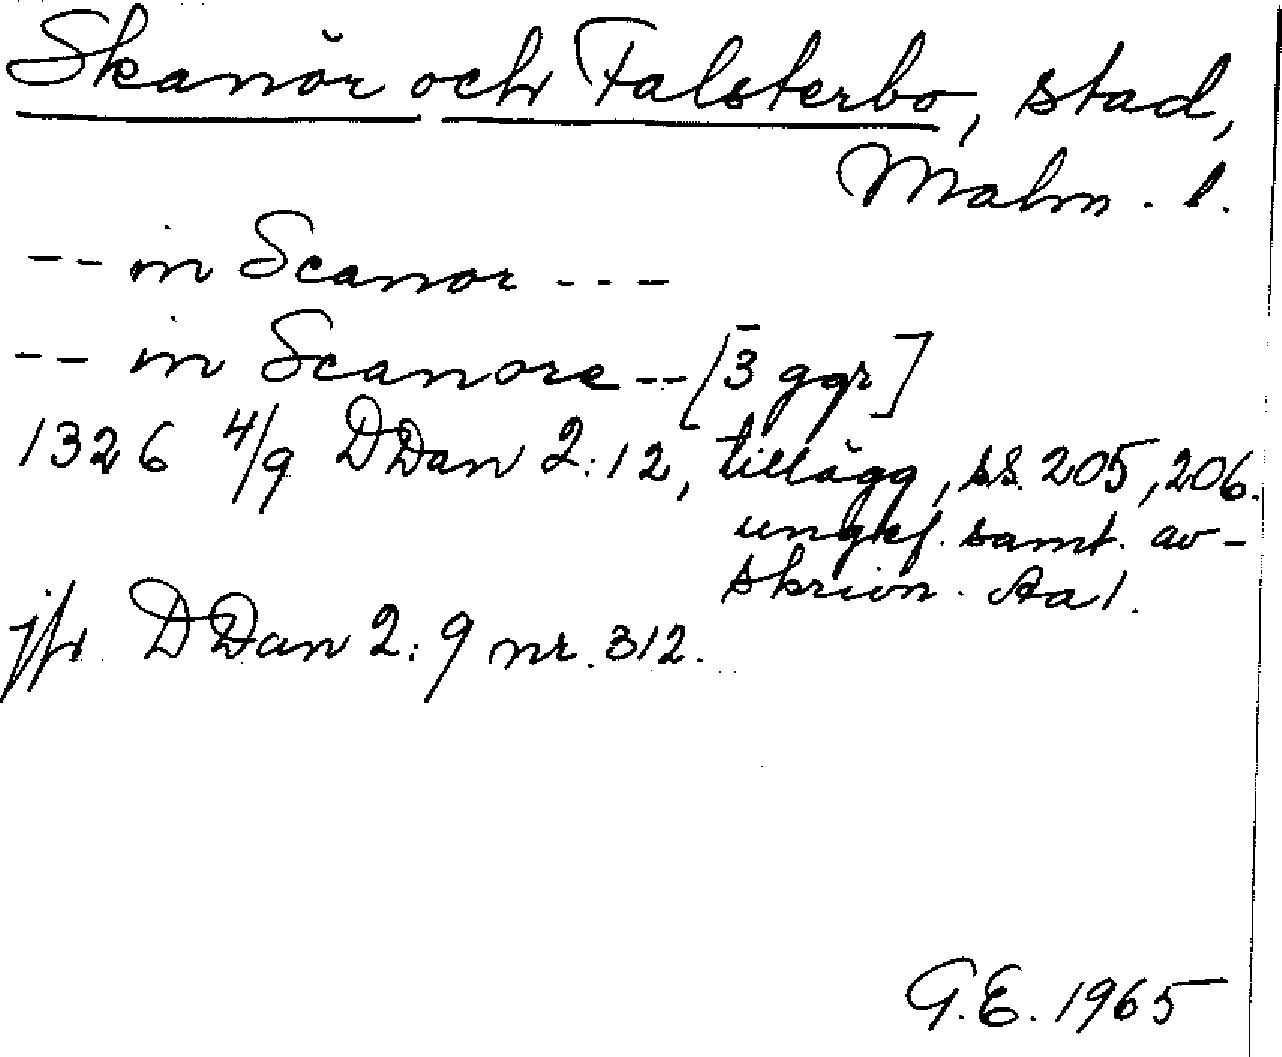 Skanör och Falsterbo, stad,
Malm. l.
-- in Scanor ---
-- in Scanore -- [3 ggr]
1326 4/9 DDan 2:12, tillägg, ss. 205, 206.
ungef. samt. av-
skrivn. Aa 1.
jfr DDan 2:9 nr. 312.
G.E. 1965